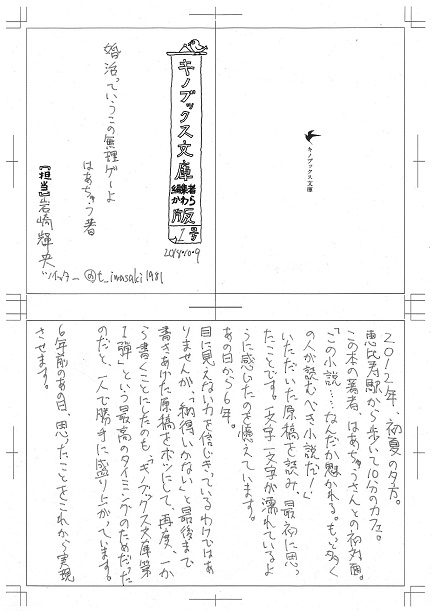 キノブックス文庫
キノブックス文庫
編集者
かわら
版
1号
2018.10.9
婚活っていうこの無理ゲーよ
はあちゅう著
『担当』岩崎輝央
ツイッター @t_iwasaki1981
2012年、初夏の夕方。
恵比寿駅から歩いて10分のカフェ。
この本の著者、はあちゅうさんとの初対面。
「この小説…なんだか魅かれる。もっと多く
の人が読むべき小説だ!」
いただいた原稿を読み、最初に思っ
たことです。一文字一文字が濡れているよ
うに感じたのを憶えています。
あの日から6年。
目に見えない力を信じきっているわけではあ
りませんが、「納得いかない」と最後まで
書きあげた原稿をボツにして、再度、一か
ら書くことにしたのも、「キノブックス文庫第
1弾」という最高のタイミングのためだった
のだと、一人で勝手に盛り上がっています。
6年前のあの日、思ったことをこれから実現
させます。